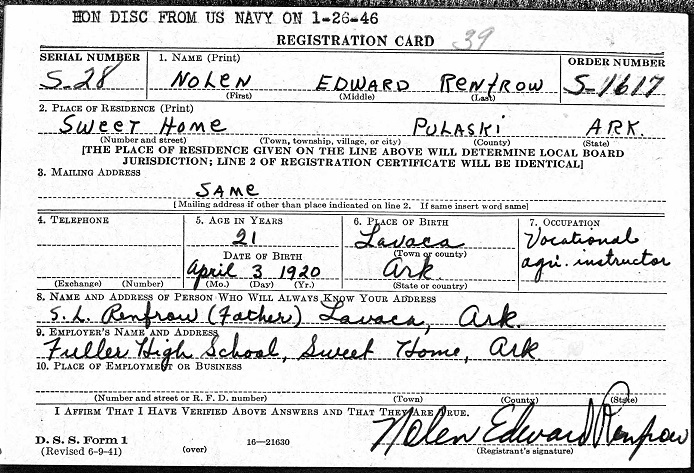 HON DISC FROM US NAVY ON 1-26-46
REGISTRATION CARD 39
SERIAL NUMBER 1. NAME (Print) ORDER NUMBER
S-28 NOLEN EDWARD RENFROW S-1617
(First) (Middle) (Last)
2. PLACE OF RESIDENCE (Print)
SWEET HOME PULASKI ARK.
(Number and street) (Town, township, village, or city) (County) (State)
[THE PLACE OF RESIDENCE GIVEN ON THE LINE ABOVE WILL DETERMINE LOCAL BOARD
JURISDICTION; LINE 2 OF REGISTRATION CERTIFICATE WILL BE IDENTICAL]
3. MAILING ADDRESS
SAME
[Mailing address if other than place indicated on line 2. If same insert word same]
4. TELEPHONE 5. AGE IN YEARS 6. PLACE OF BIRTH 7. OCCUPATION
21 Lavaca Vocational
(Town or county)
DATE OF BIRTH Ark. agri. instructor
April 3 1920
(Exchange) (Number) (Mo.) (Day) (Yr.) (State or country)
8. NAME AND ADDRESS OF PERSON WHO WILL ALWAYS KNOW YOUR ADDRESS
S. L. Renfrow (Father) Lavaca, Ark.
9. EMPLOYER'S NAME AND ADDRESS
Fuller High School, Sweet Home, Ark
10. PLACE OF EMPLOYMENT OR BUSINESS
(Number and street or R. F. D. number) (Town) (County) (State)
I AFFIRM THAT I HAVE VERIFIED ABOVE ANSWERS AND THAT THEY ARE TRUE.
Nolen Edward Renfrow
D. S. S. Form 1
(Revised 6-9-41) (over) 16—21630 (Registrant's signature)